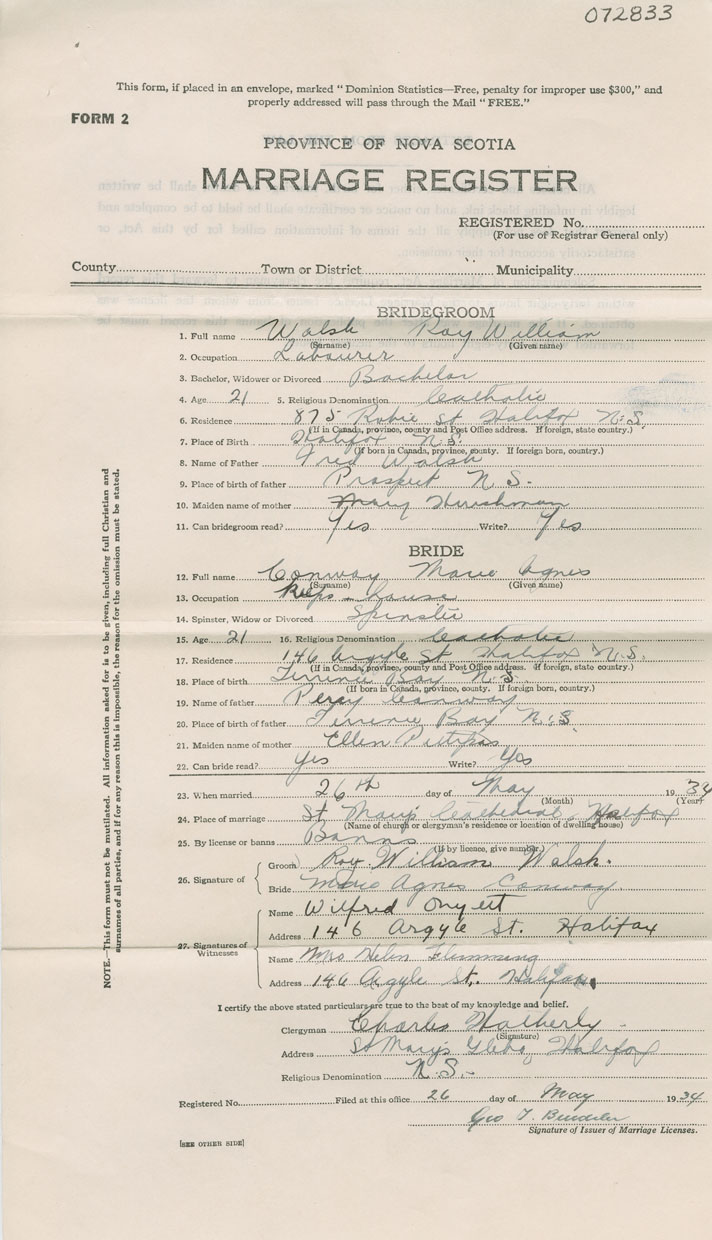 072833
This form, if placed in an envelope, marked "Dominion Statistics—Free, penalty for improper use $300," and
properly addressed will pass through the Mail "FREE."
FORM 2
PROVINCE OF NOVA SCOTIA
MARRIAGE REGISTER
REGISTERED No.
(For use of Registrar General only)
County Town or District Municipality
BRIDEGROOM
1. Full name Walsh Roy William
(Surname) (Given name)
2. Occupation Labourer
3. Bachelor, Widower or Divorced Bachelor
4. Age 21 5. Religious Denomination Catholic
6. Residence 875 Robie St Halifax N.S.
(If in Canada, province, county and Post Office address. If foreign, state country.)
7. Place of Birth Halifax N.S.
(If born in Canada, province, county. If foreign born, country.)
8. Name of Father Fred Walsh
9. Place of birth of father Prospect N.S.
10. Maiden name of mother Mary
11. Can bridegroom read? Yes Write? Yes
BRIDE
12. Full name Conway Marie Agnes
(Surname) (Given name)
13. Occupation keeps house
14. Spinster, Widow or Divorced Spinster
15. Age 21 16. Religious Denomination Catholic
17. Residence 146 Argyle St Halifax N.S.
(If in Canada, province, county and Post Office address. If foreign, state country.)
18. Place of birth Terrence Bay N.S.
(If born in Canada, province, county. If foreign born, country.)
19. Name of father Percy Conway
20. Place of birth of father Terrence Bay N.S.
21. Maiden name of mother Ellen
22. Can bride read? Yes Write? Yes
23. When married 26th day of May 1934
(Month) (Year)
24. Place of marriage St Mary's Cathedral, Halifax
(Name of church or clergyman's residence or location of dwelling house)
25. By license or banns Banns
(If by licence, give number.)
26. Signature of
Groom Roy William Walsh.
Bride Marie Agnes Conway
27. Signatures of Witnesses
Name Wilfred
Address 146 Argyle St. Halifax
Name Mrs Helen Flemming
Address 146 Argyle St, Halifax
I certify the above stated particulars are true to the best of my knowledge and belief.
Clergyman Charles
(Signature)
Address St Mary's Glebe, Halifax
Religious Denomination N.S.
Registered No. Filed at this office 26 day of May 1934
Geo T.
Signature of Issuer of Marriage Licenses.
[SEE OTHER SIDE]
NOTE.—This form must not be mutilated. All information asked for is to be given, including full Christian and
surnames of all parties, and if for any reason this is impossible, the reason for the omission must be stated.